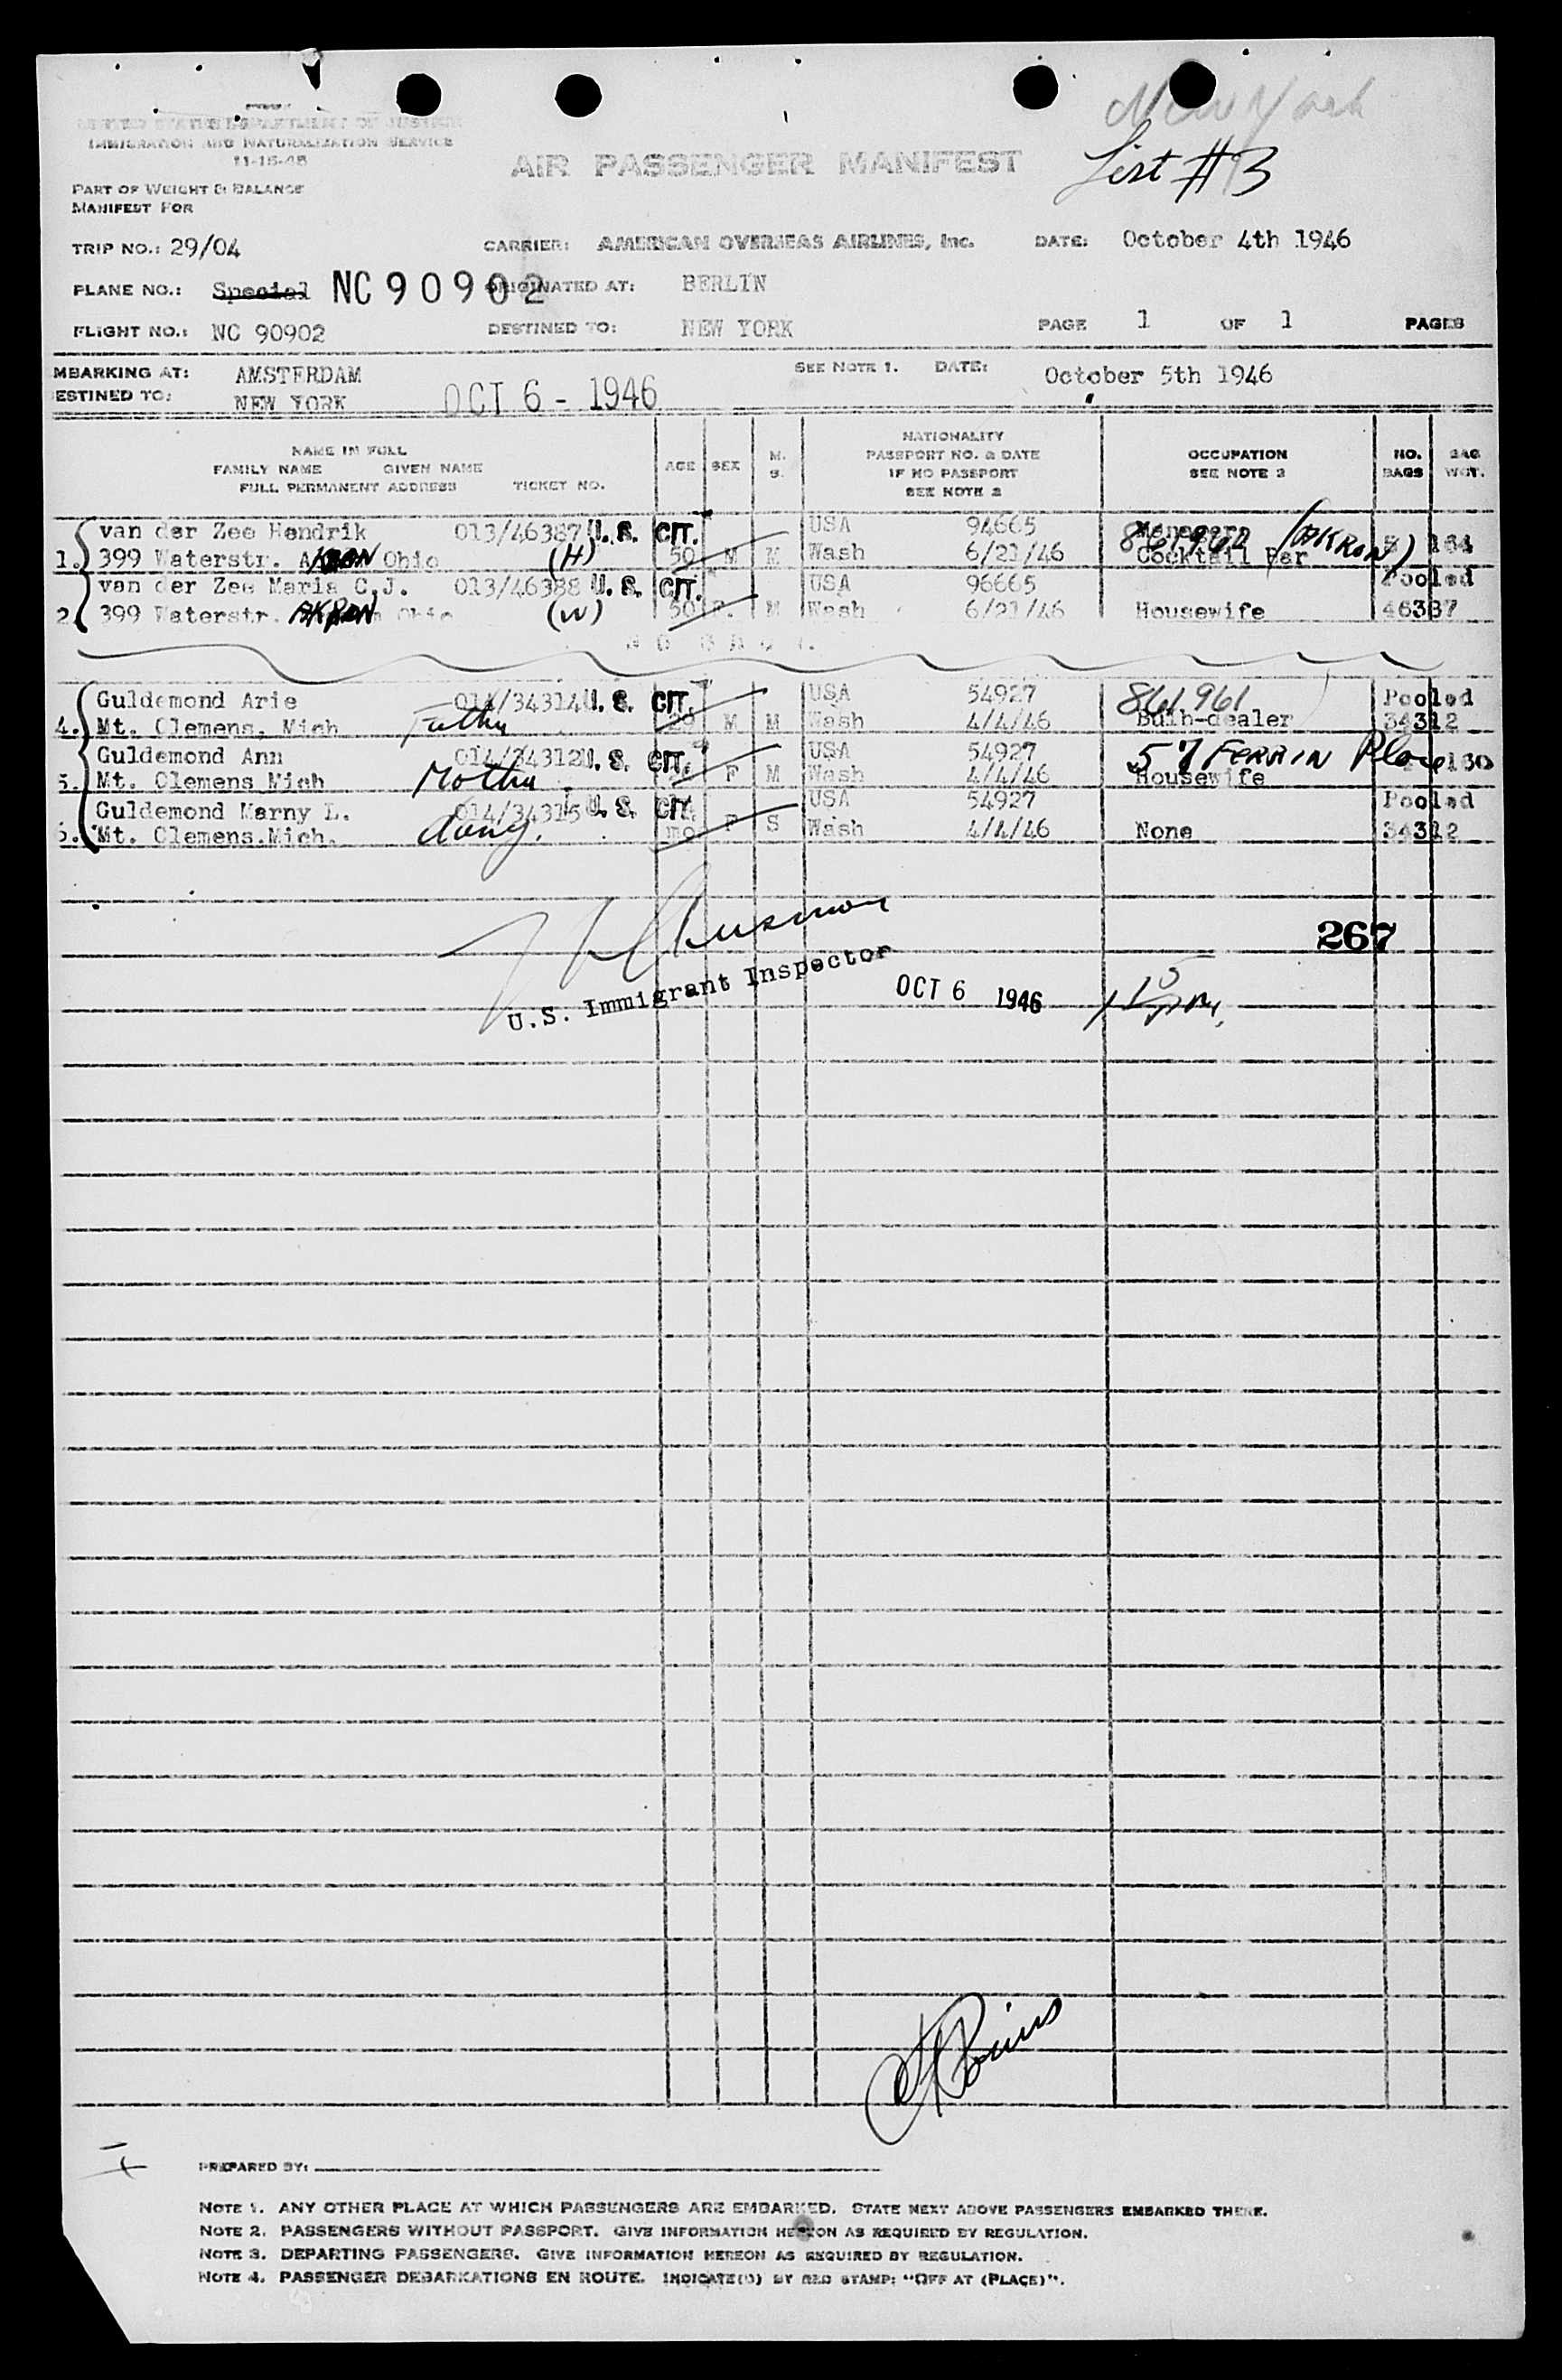 New York
UNITED STATES DEPARTMENT OF JUSTICE
IMMIGRATION AND NATURALIZATION SERVICE
11-15-45
AIR PASSENGER MANIFEST
List #3
PART OF WEIGHT & BALANCE
MANIFEST FOR
TRIP NO.: 29/04 CARRIER: AMERICAN OVERSEAS AIRLINES, Inc. DATE: October 4th 1946
PLANE NO.: Special NC90902 ORIGINATED AT: BERLIN
FLIGHT NO.: NC 90902 DESTINED TO: NEW YORK PAGE 1 OF 1 PAGES
MBARKING AT: AMSTERDAM SEE NOTE 1. DATE: October 5th 1946
ESTINED TO: NEW YORK OCT 6 - 1946
NAME IN FULL
FAMILY NAME GIVEN NAME
FULL PERMANENT ADDRESS TICKET NO.
AGE SEX M. S.
NATIONALITY
PASSPORT NO. & DATE
IF NO PASSPORT
SEE NOTE 2
OCCUPATION
SEE NOTE 3
NO. BAGS
BAG WGT.
van der Zee Hendrik 013/46387 U.S. CIT. USA 94665
1. 399 Waterstr. AKRON Ohio (H) 50 M M Wash 6/21/46 Cocktail Bar (AKRON) 164
van der Zee Maria C.J. 013/46388 U.S. CIT. USA 96665 Pooled
2. 399 Waterstr. AKRON Ohio (W) 50 F. M Wash 6/21/46 Housewife 46387
Guldemond Arie 014/34314 U.S. CIT. USA 54927 861961 Pooled
4. Mt. Clemens, Mich Father M M Wash 4/4/46 Bulb-dealer 34312
Guldemond Ann 014/34312 U.S. CIT. USA 54927 57 FERRIN Place
5. Mt. Clemens Mich Mother F M Wash 4/4/46 Housewife 130
Guldemond Marny L. 014/34315 U.S. CIT. USA 54927 Pooled
6. Mt. Clemens.Mich. mo F S Wash 4/4/46 None 34312
267
U.S. Immigrant Inspector
OCT 6 1946
PREPARED BY:
NOTE 1. ANY OTHER PLACE AT WHICH PASSENGERS ARE EMBARKED. STATE NEXT ABOVE PASSENGERS EMBARKED THERE.
NOTE 2. PASSENGERS WITHOUT PASSPORT. GIVE INFORMATION HEREON AS REQUIRED BY REGULATION.
NOTE 3. DEPARTING PASSENGERS. GIVE INFORMATION HEREON AS REQUIRED BY REGULATION.
NOTE 4. PASSENGER DEBARKATIONS EN ROUTE. INDICATE(D) BY RED STAMP: "OFF AT (PLACE)".